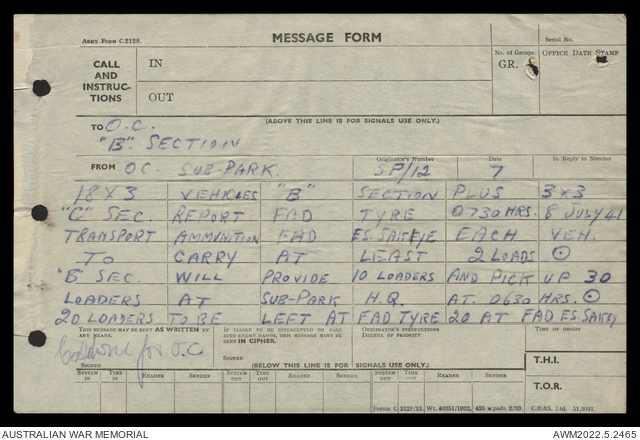 ARMY FORM C.2128.
MESSAGE FORM
Serial No.
CALL AND INSTRUCTIONS
IN
No. of Groups.
GR.
OFFICE DATE STAMP
OUT
(ABOVE THIS LINE IS FOR SIGNALS USE ONLY.)
TO O.C.
"B". SECTION
FROM OC SUB-PARK.
Originator's Number
SP/12
Date
7
In Reply to Number
18 X 3 VEHICLES "B" SECTION PLUS 3 X 3
"C" SEC. REPORT FAD TYRE 0730 HRS. 8 JULY 41
TRANSPORT AMMUNITION FAD ES. SAKEYE EACH VEH.
TO CARRY AT LEAST 2 LOADS
"B" SEC. WILL PROVIDE 10 LOADERS AND PICK UP 30
LOADERS AT SUB-PARK H.Q. AT. 0630 HRS.
20 LOADERS TO BE LEFT AT FAD TYRE 20 AT FAD ES. SAKEY
THIS MESSAGE MAY BE SENT AS WRITTEN BY ANY MEANS.
IF LIABLE TO BE INTERCEPTED OR FALL INTO ENEMY HANDS, THIS MESSAGE MUST BE SENT IN CIPHER.
ORIGINATOR'S INSTRUCTIONS
DEGREE OF PRIORITY
TIME OF ORIGIN
for O.C
SIGNED
SIGNED
(BELOW THIS LINE IS FOR SIGNALS USE ONLY.)
T.H.I.
SYSTEM IN
TIME IN
READER
SENDER
SYSTEM OUT
TIME OUT
READER
SENDER
SYSTEM OUT
TIME OUT
READER
SENDER
T.O.R.
Forms C.2128/13. Wt. 40251/1933. 435 m. pads 2/39. C.B.&S. Ltd. 51.3093.
AUSTRALIAN WAR MEMORIAL
AWM2022.5.2465